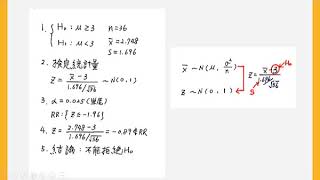 1. { H₀ : μ ≥ 3   n = 36
H₁ : μ < 3   x̄ = 2.748
S = 1.696
2. 檢定統計量
Z = (x̄ - 3) / (1.696/√36) ~ N(0, 1)
3. α = 0.025 (單尾)
RR : {Z < -1.96}
4. Z = (2.748 - 3) / (1.696/√36) = -0.89 ∉ RR
5. 結論 : 不能拒絕 H₀
x̄ ~ N(μ, σ²/n)
Z = (x̄ - 3) / (1.696/√36)
H₀
S
Z ~ N(0, 1)